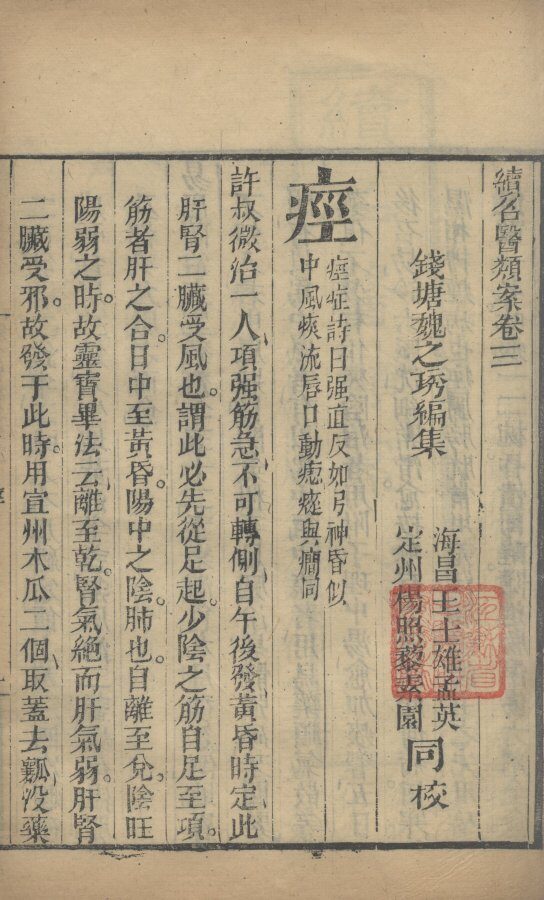 續名醫類案卷三
錢塘魏之琇編集
海昌王士雄孟英
定州楊照藜素園
同校
痙
痙症詩曰强直反如弓神昏似
中風痰流唇口動瘛瘲與癇同
許叔微治一人項强筋急不可轉側自午後發黃昏時定此
肝腎二臟受風也。謂此必先從足起。少陰之筋自足至項。
筋者肝之合。日中至黃昏。陽中之陰。肺也。自離至兌。陰旺
陽弱之時。故靈寶畢法云離至乾。腎氣絕而肝氣弱。肝腎
二臟受邪。故發于此時。用宜州木瓜二個取蓋去瓤没藥